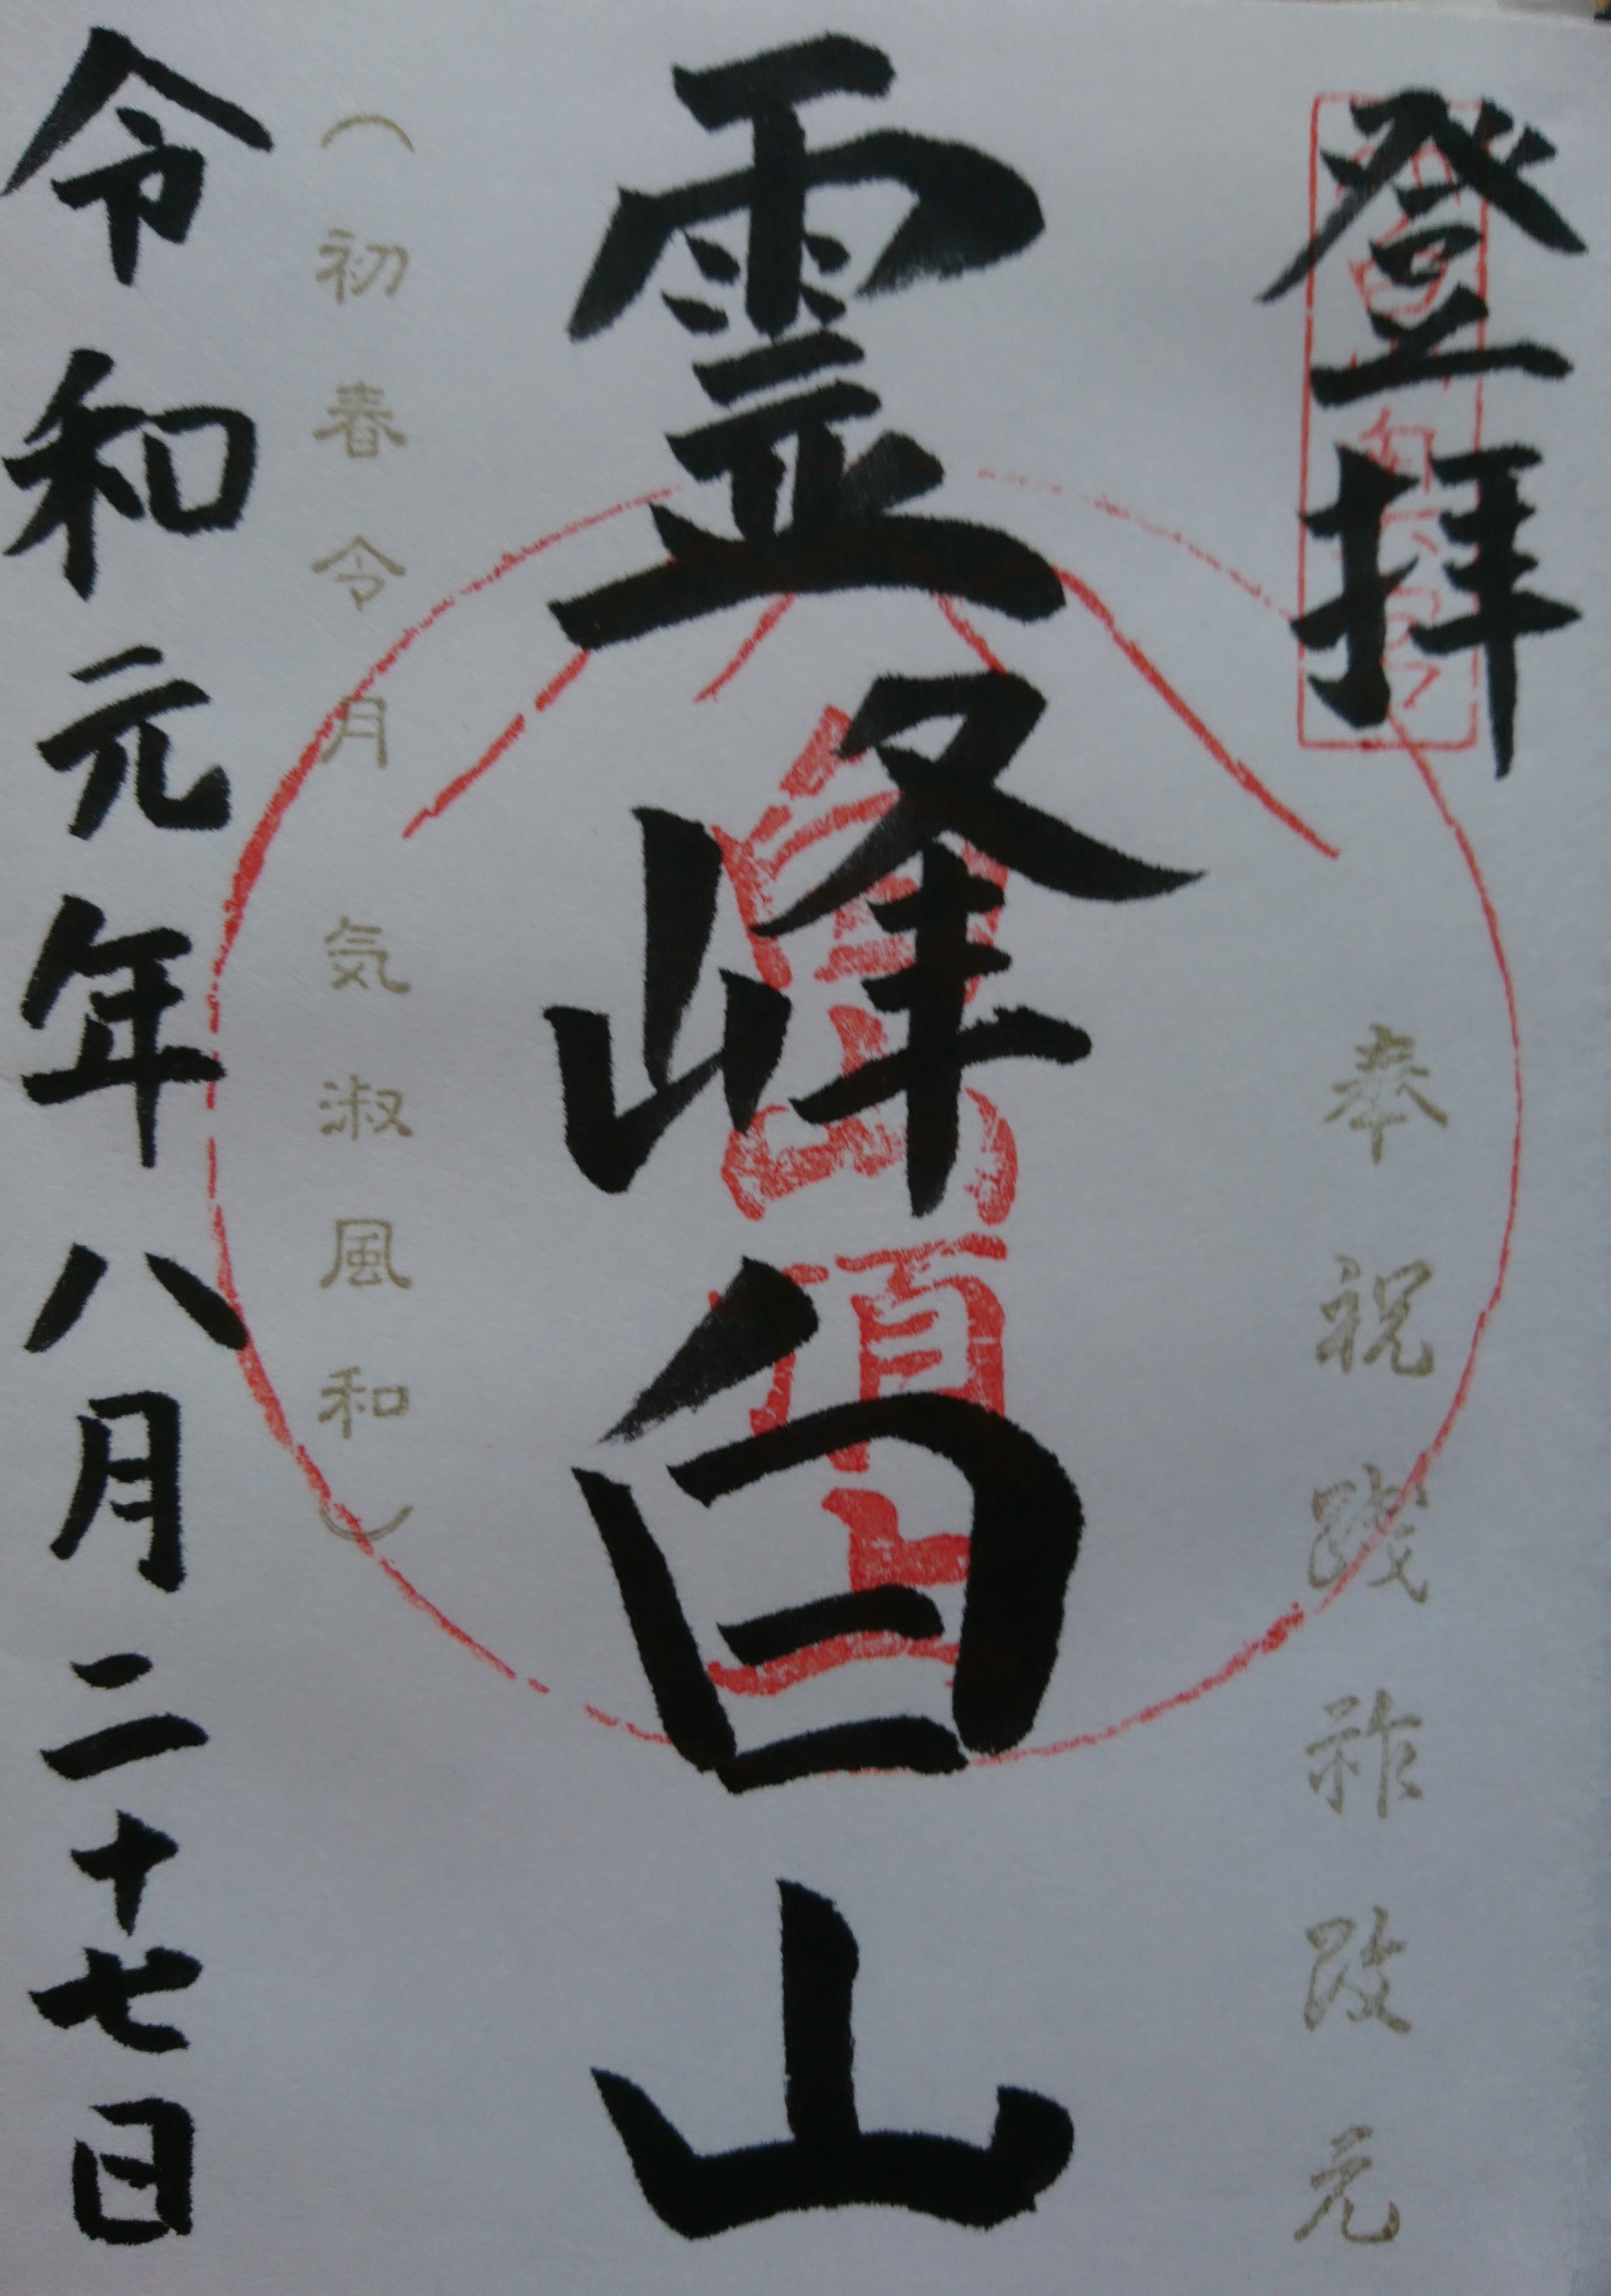 登拝
奉祝践祚改元
霊峰白山
白山頂上
（初春令月 気淑風和）
令和元年八月二十七日